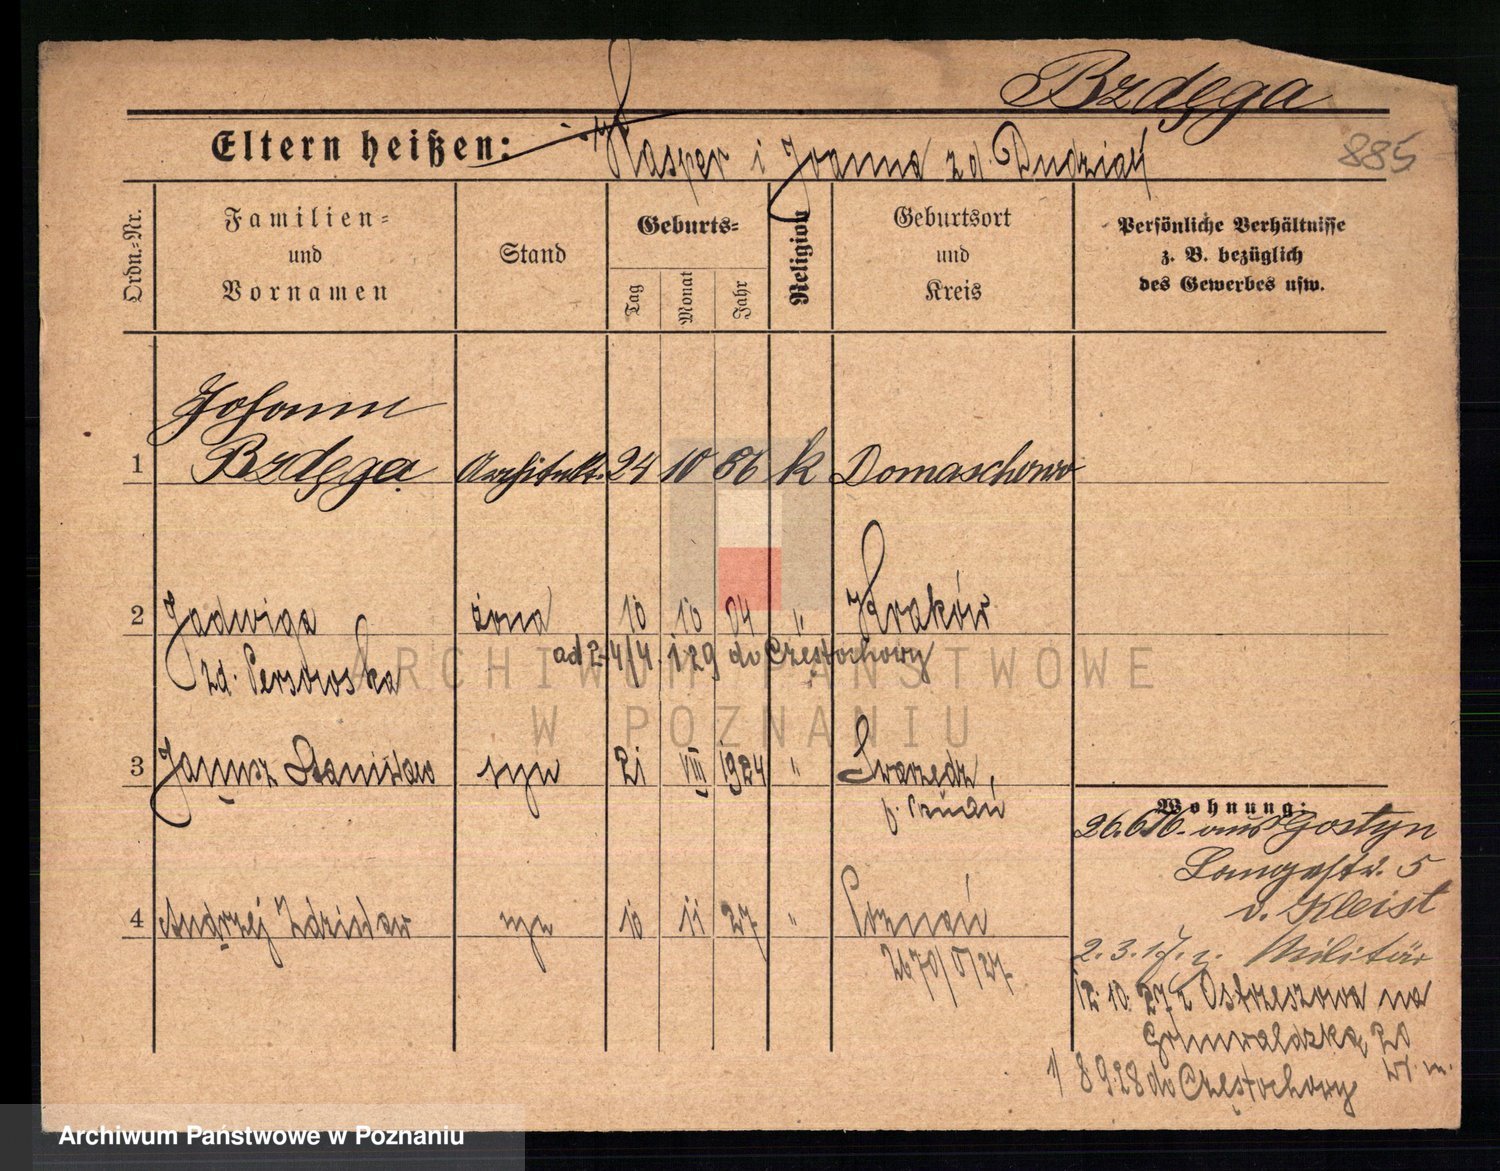 Brdęga
885
Eltern heißen: Kasper i Joanna zd. Dudziak
Ordn.=Nr.
Familien=
und
Vornamen
Stand
Geburts=
Tag
Monat
Jahr
Religion
Geburtsort
und
Kreis
Persönliche Verhältnisse
z. B. bezüglich
des Gewerbes usw.
Johann
1 Bzdęga Architekt. 24 10 86 k Domaschowo
2 Jadwiga żona 10 10 04 " Kraków
ad 2- 4/4. 29 do Częstochowy
zd.
3 Janusz Stanisław syn 21 VIII 1924 " Swarzędz,
p. Poznań
4 Andrzej Zdzisław syn 10 11 27 " Poznań
2670/V/27
Wohnung:
26.6.16. aus Gostyn
Langestr. 5
v. Kleist
2. 3. 17. z. Militär
12. 10. 27 z Ostrzeszowa na
Grunwaldzką 20
1/ 8 9.28 do Częstochowy
ARCHIWUM PAŃSTWOWE
W POZNANIU
Archiwum Państwowe w Poznaniu